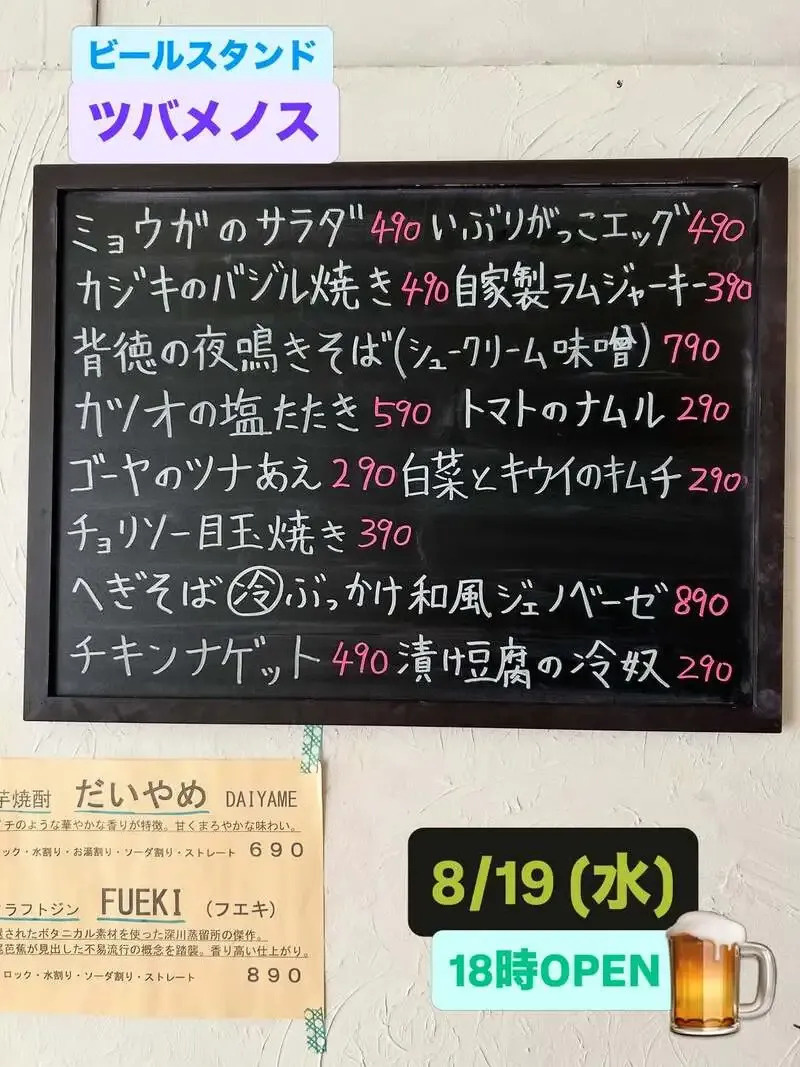 ビールスタンド
ツバメノス
ミョウガのサラダ 490 いぶりがっこエッグ 490
カジキのバジル焼き 490 自家製ラムジャーキー 390
背徳の夜鳴きそば(シュークリーム味噌) 790
カツオの塩たたき 590 トマトのナムル 290
ゴーヤのツナあえ 290 白菜とキウイのキムチ 290
チョリソー目玉焼き 390
へぎそば 冷 ぶっかけ和風ジェノベーゼ 890
チキンナゲット 490 漬け豆腐の冷奴 290
芋焼酎 だいやめ DAIYAME
イチのような華やかな香りが特徴。甘くまろやかな味わい。
ロック・水割り・お湯割り・ソーダ割り・ストレート 690
ラフトジン FUEKI (フエキ)
されたボタニカル素材を使った深川蒸留所の傑作。
尾芭蕉が見出した不易流行の概念を踏襲。香り高い仕上がり。
ロック・水割り・ソーダ割り・ストレート 890
8/19 (水)
18時OPEN